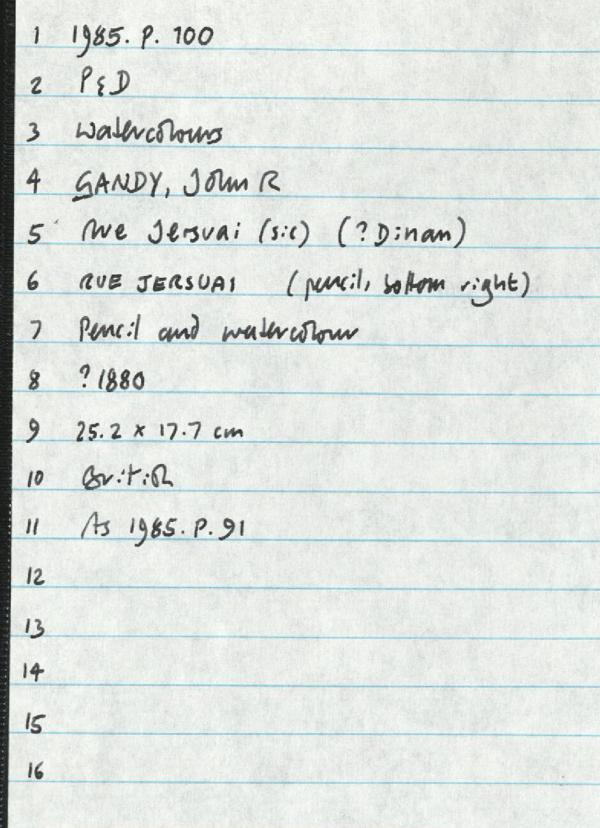 1 1985. P. 100
2 P&D
3 Watercolours
4 GANDY, John R
5 Rue Jersuai (sic) (? Dinan)
6 RUE JERSUAI (pencil, bottom right)
7 Pencil and watercolour
8 ? 1880
9 25.2 x 17.7 cm
10 British
11 As 1985. P. 91
12
13
14
15
16